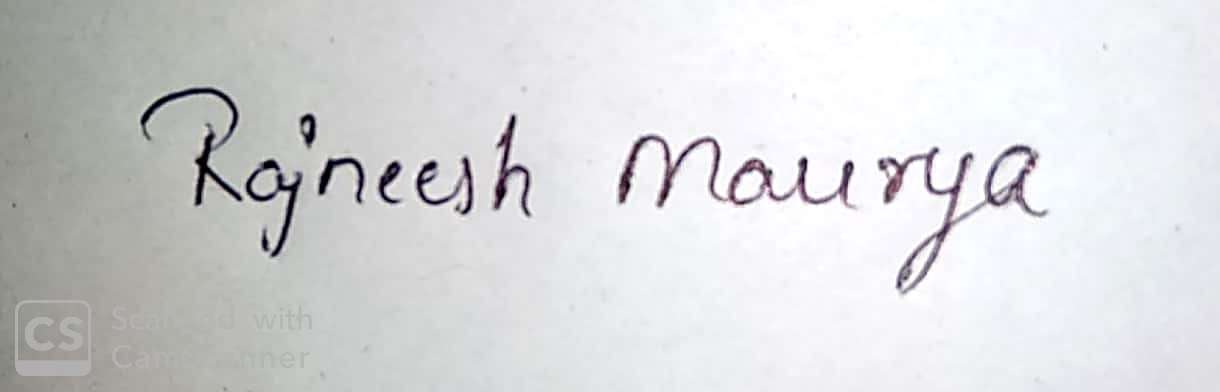 Rajneesh Maurya
CS Scanned with
CamScanner